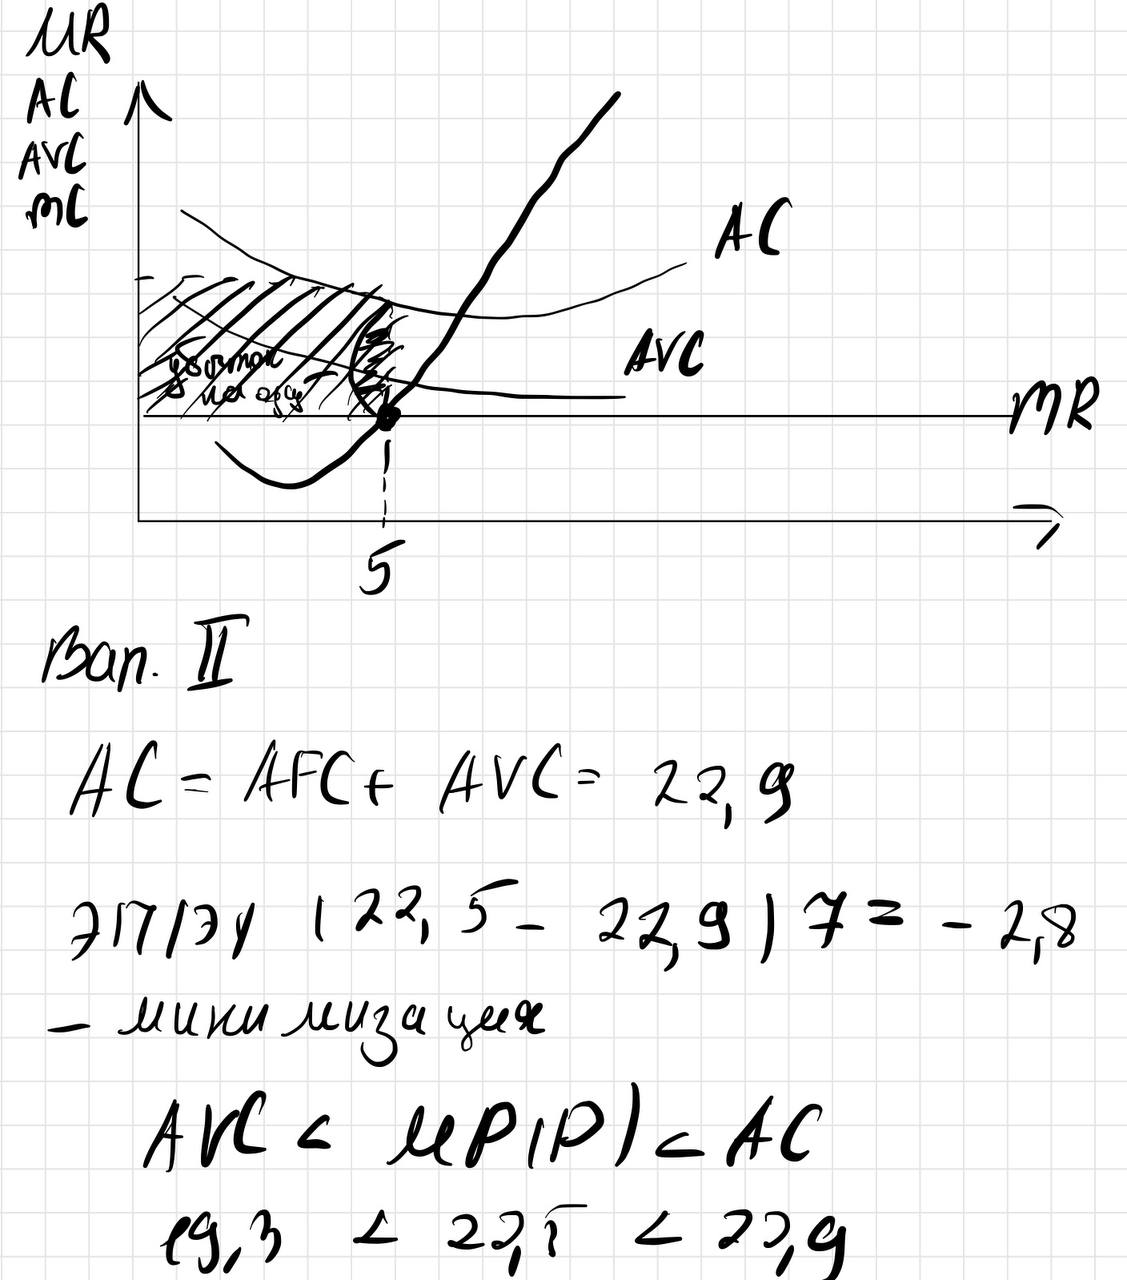 MR
AC
AVC
MC
AC
AVC
убыток
на одну
MR
5
Вар. II
AC = AFC + AVC = 22,9
ЭП/ЭУ (22,5 - 22,9) 7 = - 2,8
- минимизация
AVC < MP(P) < AC
19,3 < 22,5 < 22,9